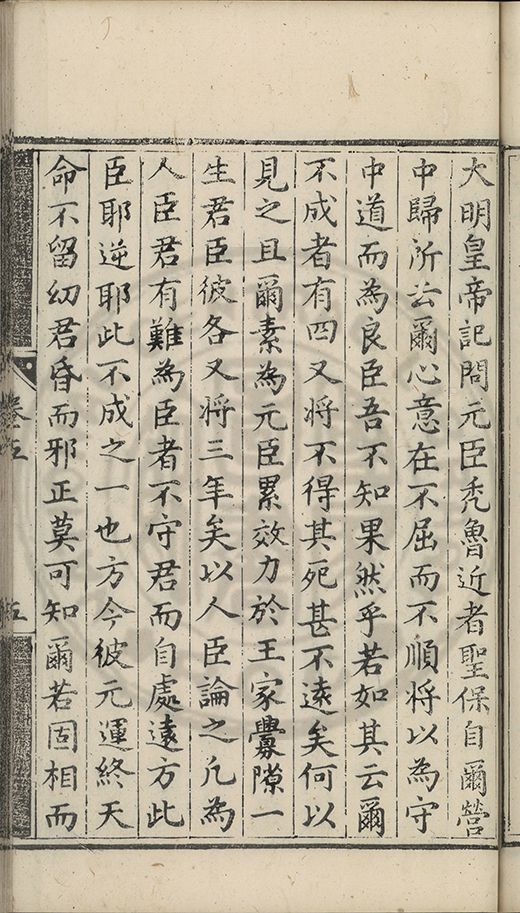 大明皇帝記問元臣禿魯近者聖保自爾營
中歸所云爾心意在不屈而不順將以為守
中道而為良臣吾不知果然乎若如其云爾
不成者有四又將不得其死甚不遠矣何以
見之且爾素為元臣累效力於王家釁隙一
生君臣彼各又將三年矣以人臣論之凡為
人臣君有難為臣者不守君而自處遠方此
臣耶逆耶此不成之一也方今彼元運終天
命不留幼君昏而邪正莫可知爾若固相而
卷五
五